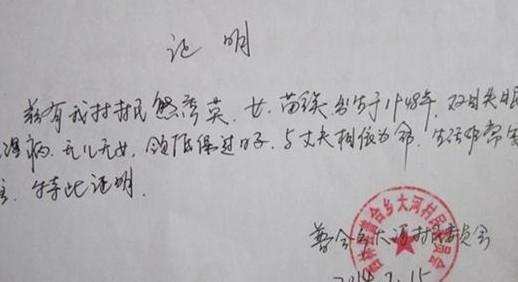 证明
兹有我村村民熊秀英、女、苗族、出生于1948年、双目失明
湿病、无儿无女、领低保过日子、与丈夫相依为命、生活非常
特此证明.
普合乡大河村民委员会
2014.7.15
普合乡大河村民委员会